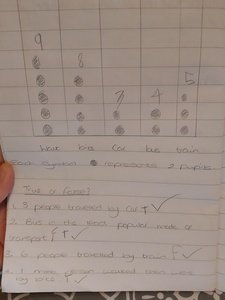 9
8
5
3 4
Walk bus Car bus train
each symbol represents 2 pupils
True or false?
1. 3 people travelled by car T
2. Bus is the least popular mode of
transport F T
3. 6 people travelled by train F
4. 1 more person walked than went
by bike T